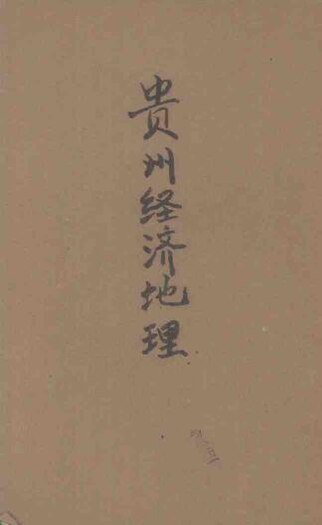 贵州经济地理